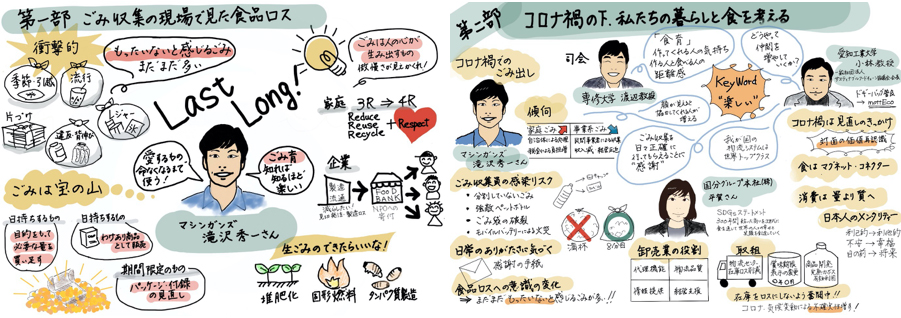 第一部 ごみ収集の現場で見た食品ロス
衝撃的
もったいないと感じるごみ
まだまだ多い
季節・引越
流行
片づけ
レジャー
Last
Long!
ごみは人の心が
生み出すもの
家庭 3R → 4R
Reduce
Reuse
Recycle
+ Respect
企業
製造
流通
FOOD
BANK
NPOへの
寄付
愛するもの、
命なくなるまで
使う!
ごみ育
知れば
知るほど
楽しい
マシンガンズ
滝沢秀一さん
ごみは宝の山
日持ちするもの
目的をもって
必ず量を
買い足す
日持ちするもの
わけあり商品
として販売
期間限定のもの
パッケージ・付録
の見直し
生ごみのできたらいいな!
堆肥化
固形燃料
タンパク質製造
第二部 コロナ禍の下、私たちの暮らしと食を考える
コロナ禍での
ごみ出し
マシンガンズ
滝沢秀一さん
司会
専修大学 渡辺教授
「食育」
作ってくれる人の気持ち
作る人と食べる人の
距離感
どうやって
仲間を
増やして
いくか?
KeyWord
"楽しい"
愛知工業大学
小林教授
ドギーバッグ普及
→ mottEco
傾向
家庭ごみ
事業系ごみ
ごみ収集も
日々正確に
行ってもらえることに
"感謝"
我が国の
物流システムは
世界トップクラス
コロナ禍は見直しのきっかけ
対面の価値再認識
食はマグネット・コネクター
消費は量より質へ
日本人のメンタリティー
利己的→利他的
不安→幸福
目の前→将来
ごみ収集員の感染リスク
・分別していないごみ
・破裂ペットボトル
・ごみ袋の破裂
・モバイルバッテリーによる火災
満杯
8分目
国分グループ本社(株)
平賀さん
SDGsステートメント
日常のありがたさに気づく
感謝の手紙
食品ロスへの意識の変化
→ まだまだもったいないと感じるごみが多い!!
卸売業の役割
代理機能
物流品質
情報提供
経営支援
取組
物流センター
在庫ロス削減
賞味期限
表示の変更
商品開発
在庫をロスにしないよう奮闘中!!
コロナ、気候変動による不確実性増す!